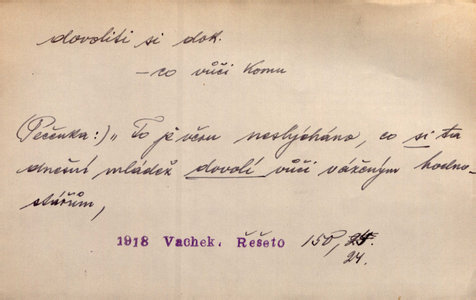 dovoliti si dok.
— co vůči komu
(Pečenka:) „To je věru neslýcháno, co si ta
dnešní mládež dovolí vůči váženým hodno-
stářům,
1918 Vachek. Řešeto 150,
24.